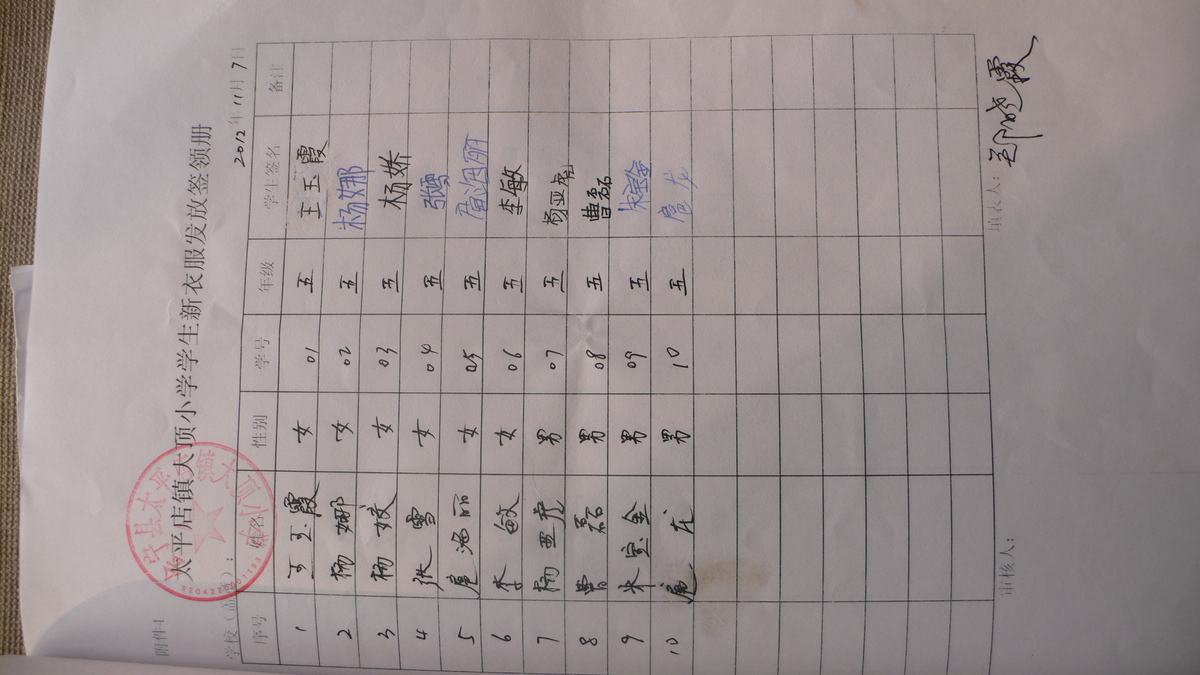 附件4
太平店镇大顶小学学生新衣服发放签领册
学校（盖章）： 2012年11月7日
序号 姓名 性别 学号 年级 学生签名 备注
1 王玉霞 女 01 五 王玉霞
2 杨娜 女 02 五 杨娜
3 杨姣 女 03 五 杨娇
4 张雪 女 04 五 张雪
5 扈海丽 女 05 五 扈海丽
6 李敏 女 06 五 李敏
7 杨亚虎 男 07 五 杨亚虎
8 曹磊 男 08 五 曹磊
9 朱宝金 男 09 五 朱宝金
10 扈龙 男 10 五 扈龙
审核人： 填表人：邓晓霞